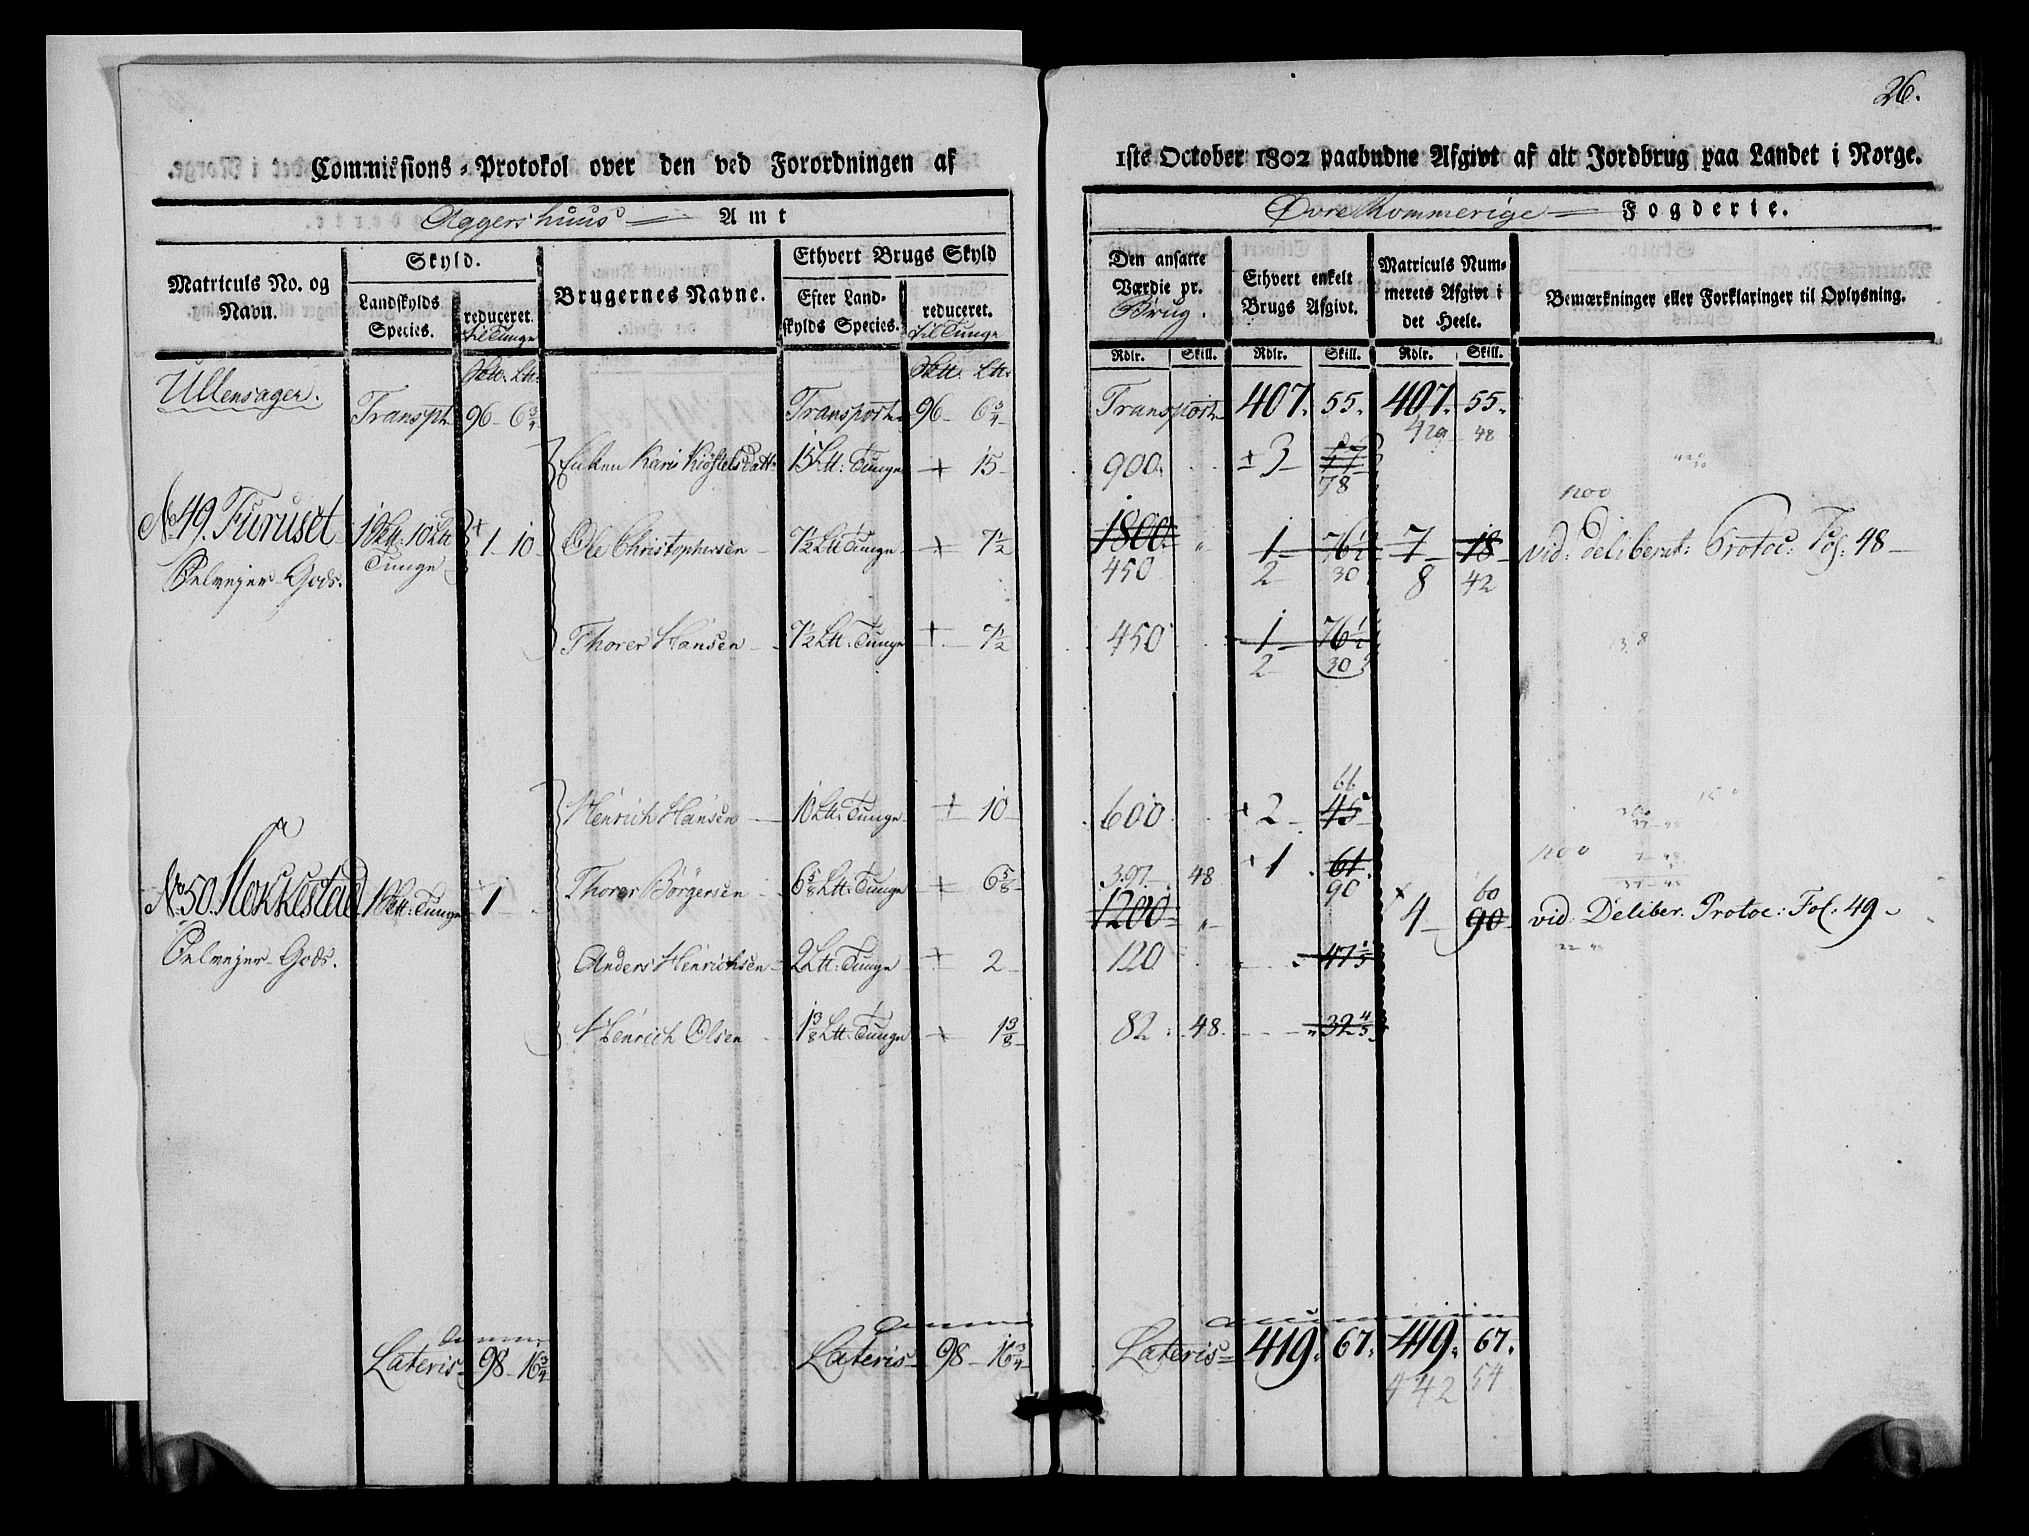 26.
Commissions-Protokol over den ved Forordningen af
1ste October 1802 paabudne Afgivt af alt Jordbrug paa Landet i Norge.
Aggershuus Amt
Øvre Rommerige Fogderie.
Matriculs No. og Navn.
Skyld.
Landskylds Species.
reduceret. til Tunge
Brugernes Navne.
Ethvert Brugs Skyld
Efter Landskylds Species.
reduceret. til Tunge
Den ansatte Værdie pr. Brug.
Ethvert enkelt Brugs Afgivt.
Matriculs Nummerets Afgivt i det Heele.
Bemærkninger eller Forklaringer til Oplysning.
Rdlr. Skill. Rdlr. Skill. Rdlr. Skill.
Ullensager.
Transpt 96 6 3/4 Transport 96 6 3/4 Transport 407. 55. 407. 55.
48
15 Ltt: Tunge + 15 900. 3 78
No 49. Furuset 1 10 Ole Christophersen 7 1/2 Ltt Tunge + 7 1/2 1800. 1 76 1/2 7 18 vid: deliberat: Protoc: Fol: 48
Tunge
450 2 30 8 42
Selvejer Gods.
Thorer Hansen 7 1/2 Ltt: Tunge + 7 1/2 450 1 76 1/2
2 30
66
Henrich Hansen 10 Ltt: Tunge + 10 600 + 2 45
Thorer Börgersen 6 5/8 Ltt: Tunge + 6 5/8 397 48 + 1 61
90
No 50. Stokkestad 1 1 1200 4 90 vid: Deliber. Protoc: Fol: 49
60
Selvejer Gods.
Anders Henrichsen 2 Ltt: Tunge + 2 120
Henrich Olsen 1 3/8 Ltt: Tunge + 1 3/8 82. 48. 32 4/5
Lateris 98 16 3/4 Lateris 98 16 3/4 Lateris 419. 67. 419. 67.
442 54